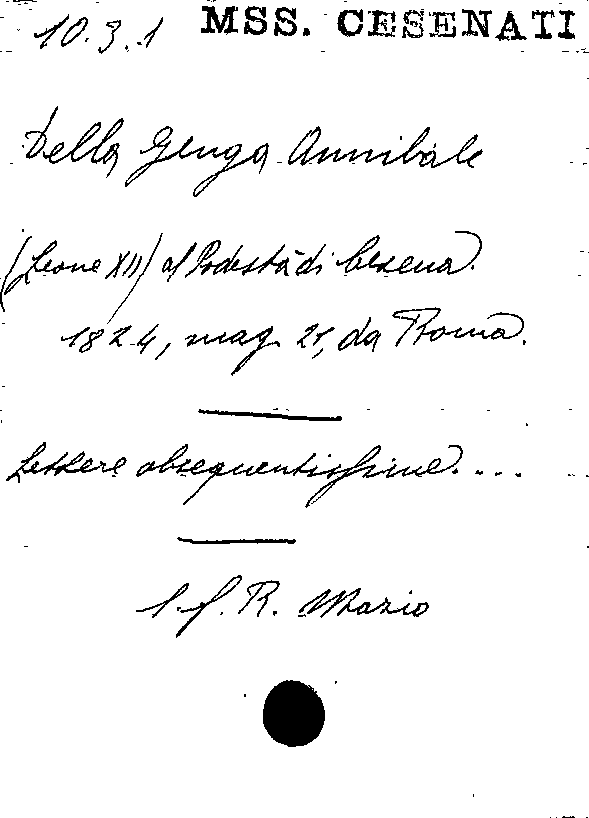 10.3.1 MSS. CESENATI
Della Genga Annibale
(Leone XII) al Podestà di Cesena.
1824, mag. 21, da Roma.
Lettere obsequentissime....
1. f. R. Mazio